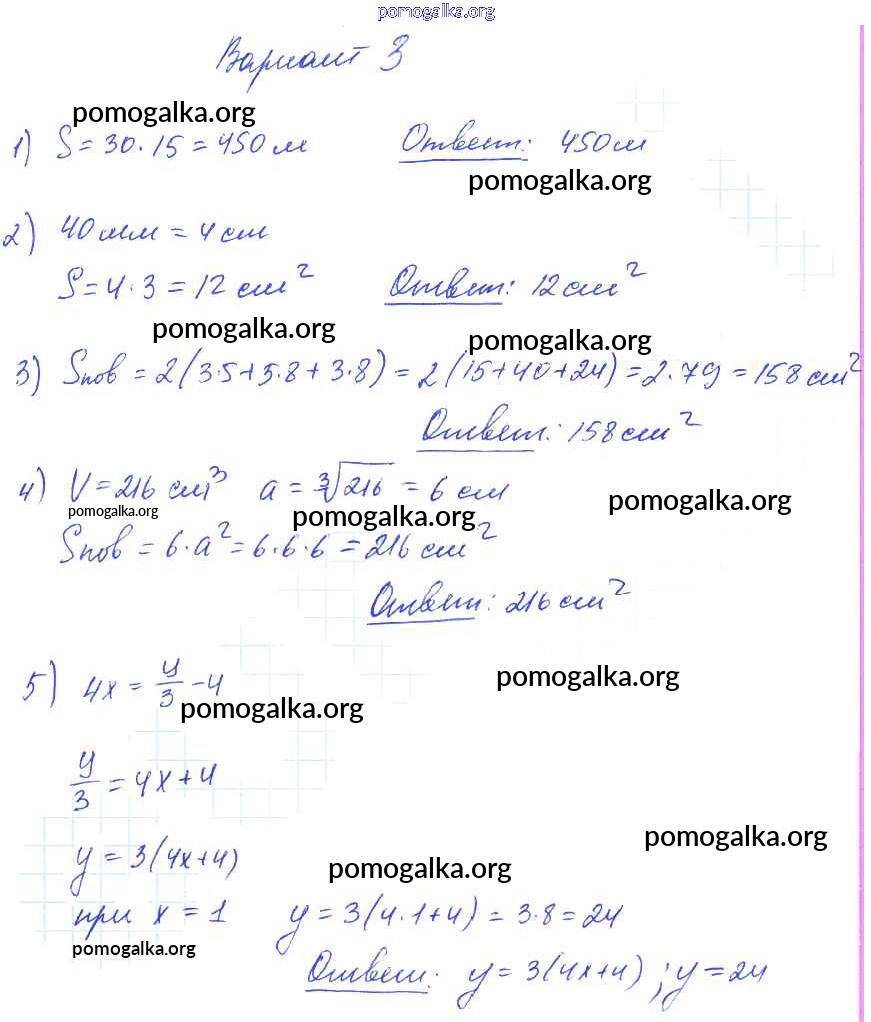 pomogalka.org
Вариант 3
pomogalka.org
1) S = 30 · 15 = 450 м Ответ: 450 м
pomogalka.org
2) 40 мм = 4 см
S = 4 · 3 = 12 см² Ответ: 12 см²
pomogalka.org pomogalka.org
3) Sпов = 2(3·5+5·8+3·8) = 2(15+40+24) = 2·79 = 158 см²
Ответ: 158 см²
4) V = 216 см³ a = ∛216 = 6 см
pomogalka.org pomogalka.org pomogalka.org
Sпов = 6·a² = 6·6·6 = 216 см²
Ответ: 216 см²
5) 4x = y/3 − 4
pomogalka.org pomogalka.org
y/3 = 4x + 4
y = 3(4x+4)
pomogalka.org pomogalka.org
при x = 1 y = 3(4·1+4) = 3·8 = 24
pomogalka.org
Ответ: y = 3(4x+4); y = 24